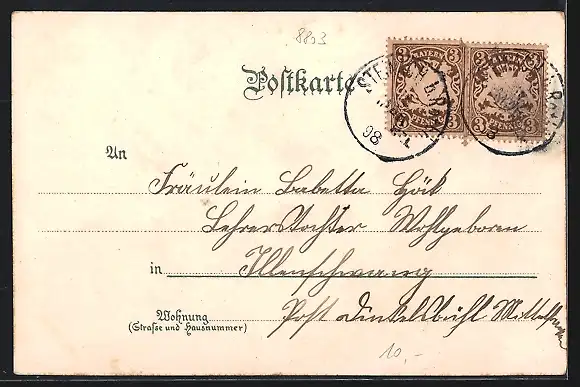 8803
BAYERN BAYERN
3 3 3 3
PFENNIG PFENNIG
98
Postkarte
An
Fräulein Babetta Höck
Lehrerstochter Wohlgeboren
in Illenschwang
Wohnung
(Strasse und Hausnummer)
Post Dinkelsbühl
10,-